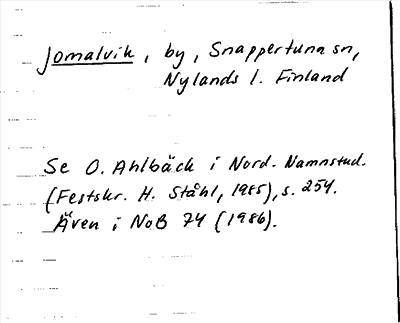 Jomalvik, by, Snappertuna sn,
Nylands l. Finland
Se O. Ahlbäck i Nord. Namnstud.
(Festskr. H. Ståhl, 1985), s. 254.
Även i NoB 74 (1986).